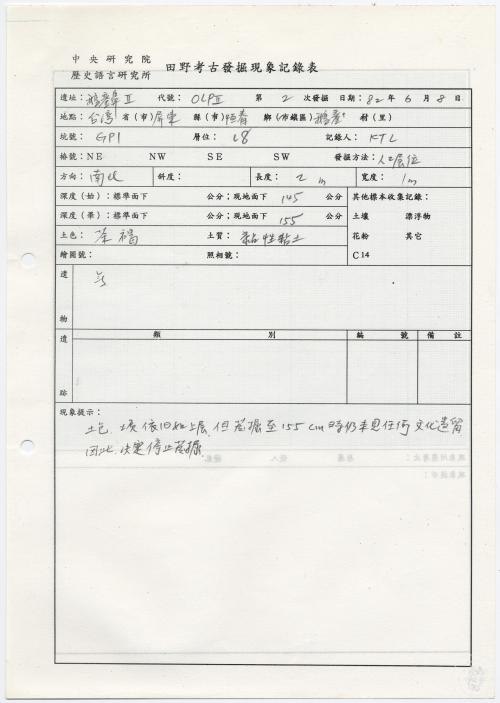 中央研究院
歷史語言研究所
田野考古發掘現象記錄表
遺址:鵝鑾鼻II 代號:OLPII 第 2 次發掘 日期:82年 6 月 8 日
地點:台灣省(市)屏東縣(市)恒春鄉(市鎮區)鵝鑾村(里)
坑號:GP1 層位:L8 記錄人:KTL
樁號:NE NW SE SW 發掘方法:人工層位
方向:南北 斜度: 長度:2 m 寬度:1m
深度(始):標準面下 公分;現地面下 145 公分 其他標本收集記錄:
深度(畢):標準面下 公分;現地面下 155 公分 土壤 漂浮物
土色:深褐 土質:黏性黏土 花粉 其它
繪圖號: 照相號: C14
遺物 無
遺跡 類別 編號 備註
現象提示:
土色、壤依旧如上層,但茖掘至155cm時仍未見任何文化遺留
因此,決定停止茖掘.